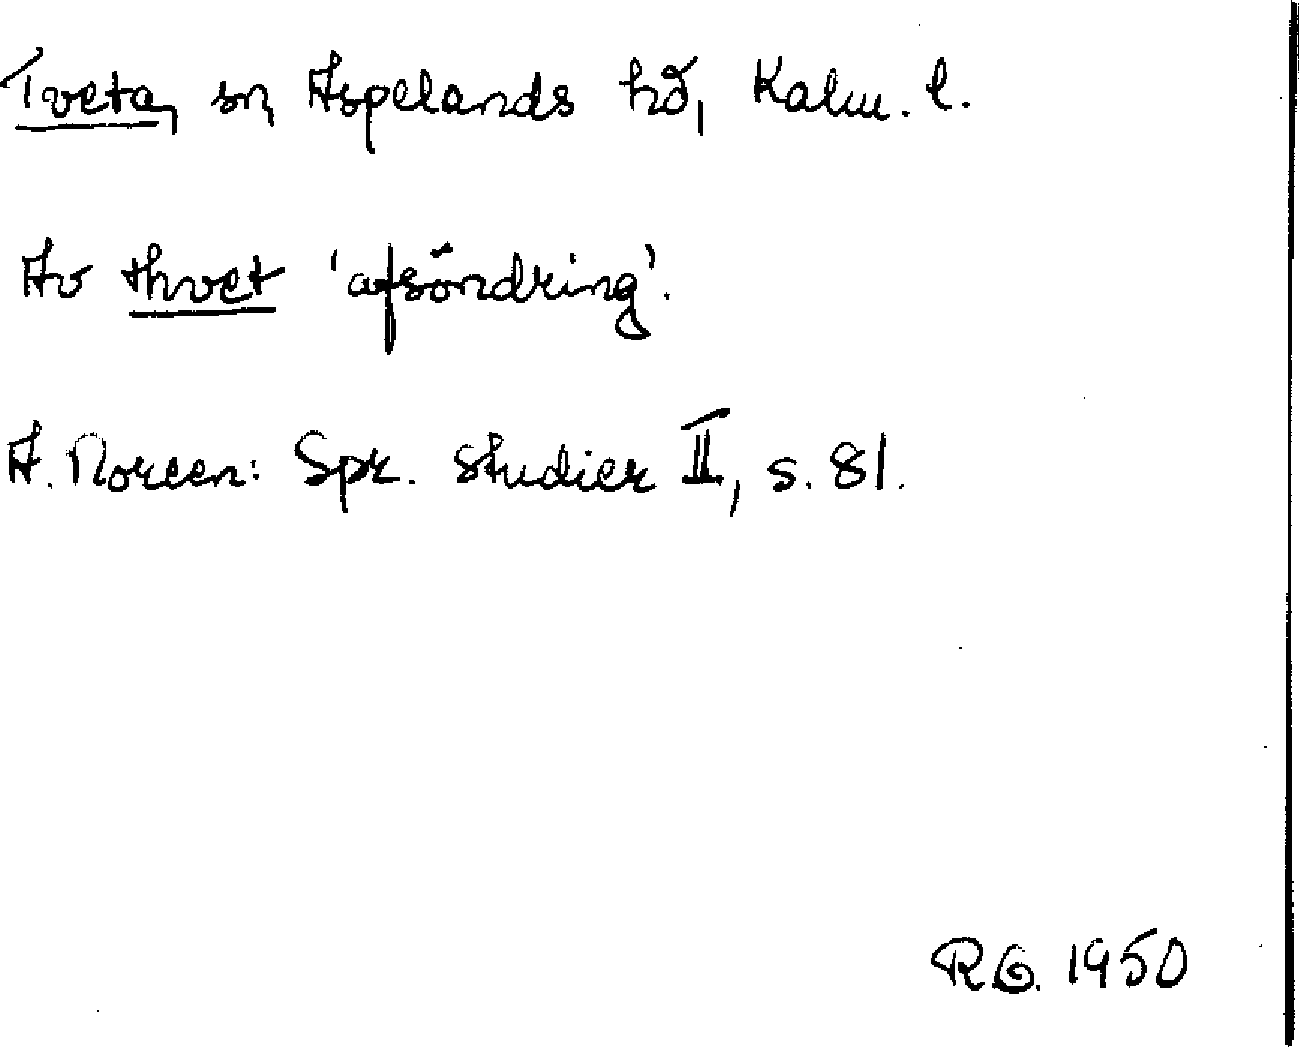 Tveta, sn, Aspelands hd, Kalm. l.
Av thvet 'afsöndring'.
A. Noreen: Spr. studier II, s. 81.
RG. 1950